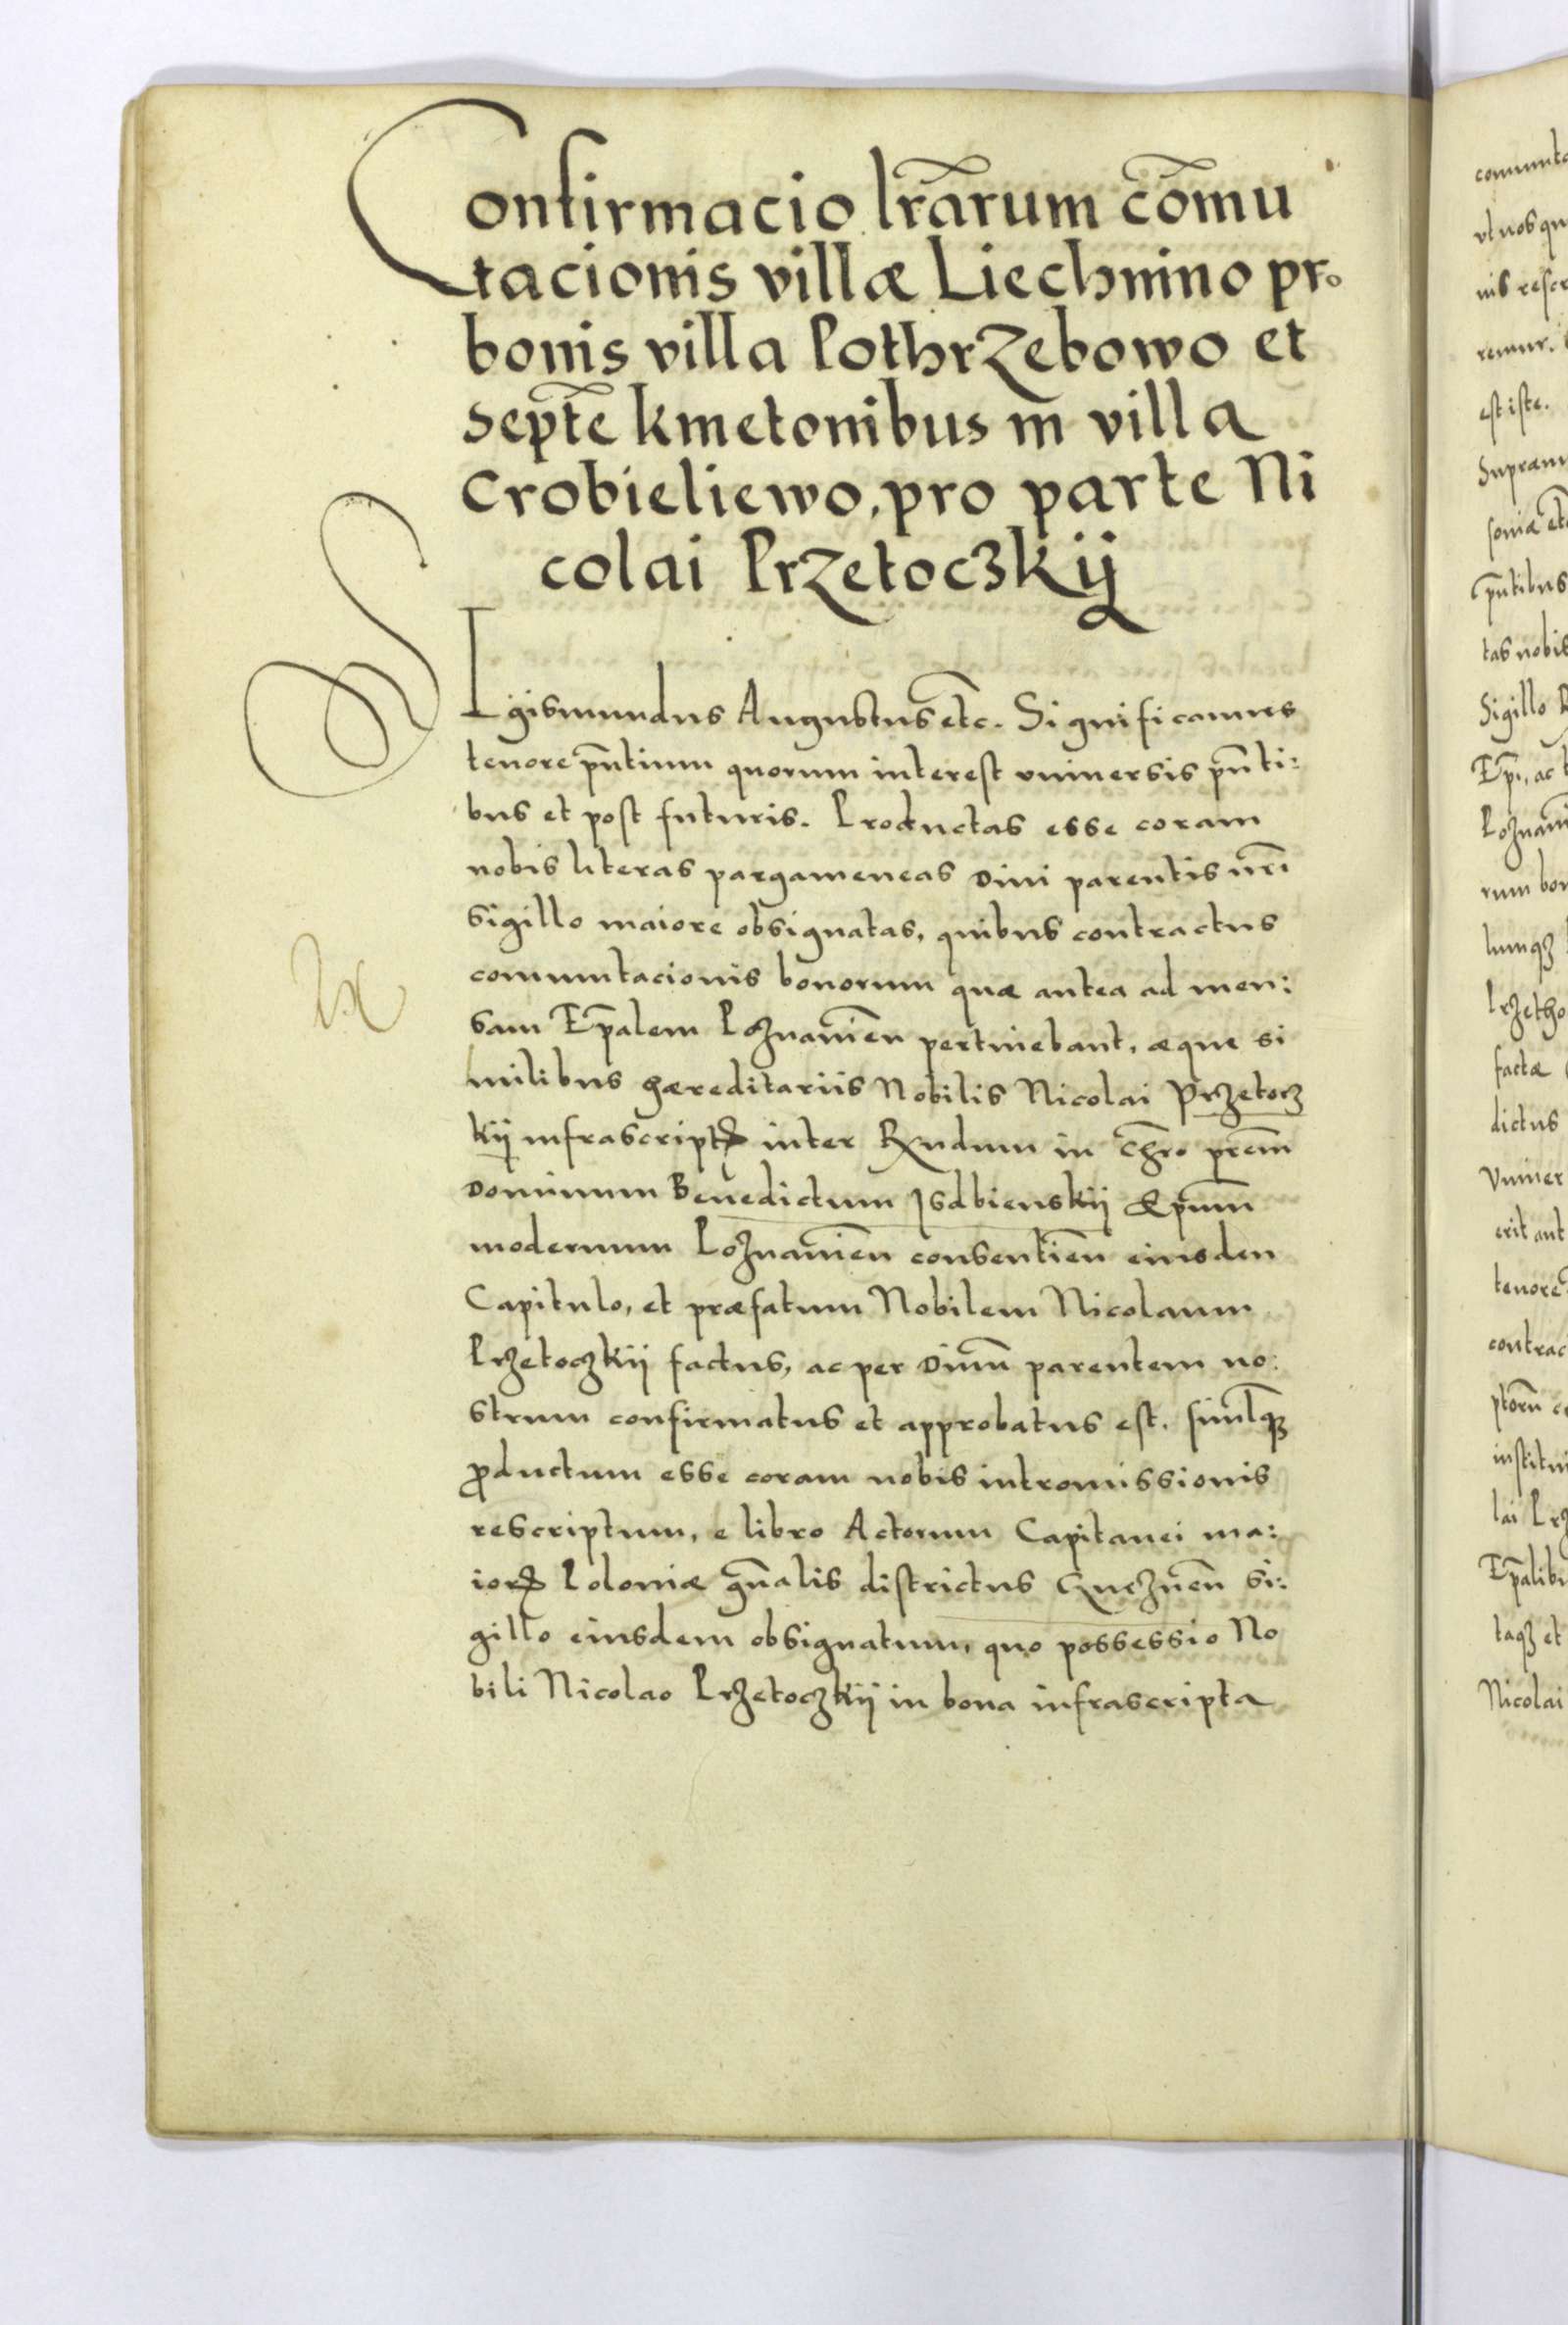 Confirmacio lr̃arum com̃u
tacionis villæ Liechnino pro
bonis villa Pothrzebowo et
septẽ kmetonibus in villa
Crobieliewo, pro parte Ni
colai Przetoczkij
SIgismundus Augustus etc̃. Significamus
tenore pñtium quorum interest vniuersis pñti:
bus et post futuris. Productas esse coram
nobis literas pargameneas Diui parentis nr̃i
sigillo maiore obsignatas, quibus contractus
comutacionis bonorum quæ antea ad men:
sam Ep̃alem Poznaniẽn pertinebant, æque si
milibus hæreditariis Nobilis Nicolai Przetocz
kij infrascriptꝝ inter Rx̃ndum in Chr̃o prẽm
Dominum Benedictum Isdbienskij Ep̃um
modernum Poznaniẽn consentiẽn eiusdem
Capitulo, et præfatum Nobilem Nicolaum
Przetoczkij factus, ac per Diuũ parentem no:
strum confirmatus et approbatus est. simulqꝫ
ꝓductum esse coram nobis intromissionis
rescriptum, e libro Actorum Capitanei ma:
iorꝝ Poloniæ gñalis districtus Gneznẽn si:
gillo eiusdem obsignatum, quo possessio No
bili Nicolao Przetoczkij in bona infrascripta
comunta
vt nos qu
nis rescr
remur.
est iste.
Supram
soniæ etc̃
pñtibus
tas nobis
Sigillo
Ep̃i, ac
Poznani
rum bon
lumqꝫ
Przetho
factæ
dictus
Vniuer
erit aut
tenore
contrac
ptorũ c
institui
lai Prz
Ep̃alibu
taqꝫ et
Nicolai